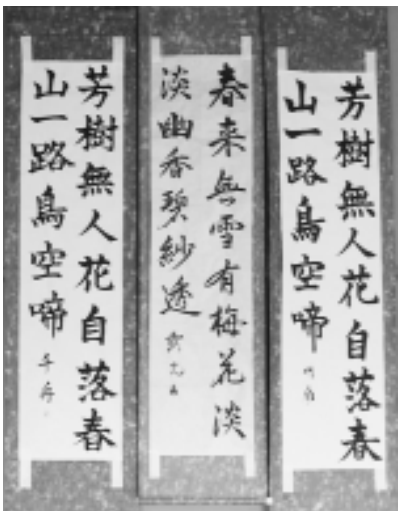 芳樹無人花自落春
山一路鳥空啼
春来無雪有梅花淡
淡幽香碧紗透
芳樹無人花自落春
山一路鳥空啼